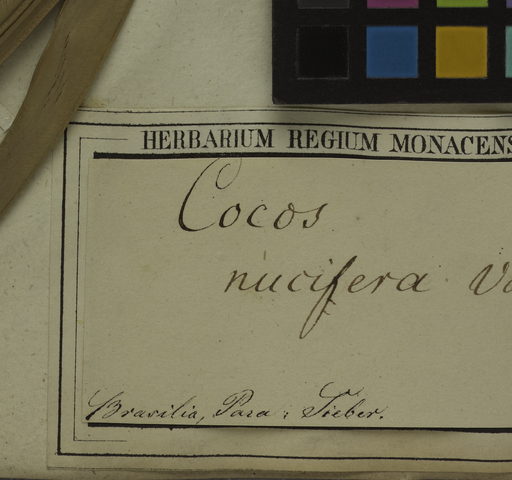 HERBARIUM REGIUM MONACENS
Cocos
nucifera
Brasilia, Para: Sieber.